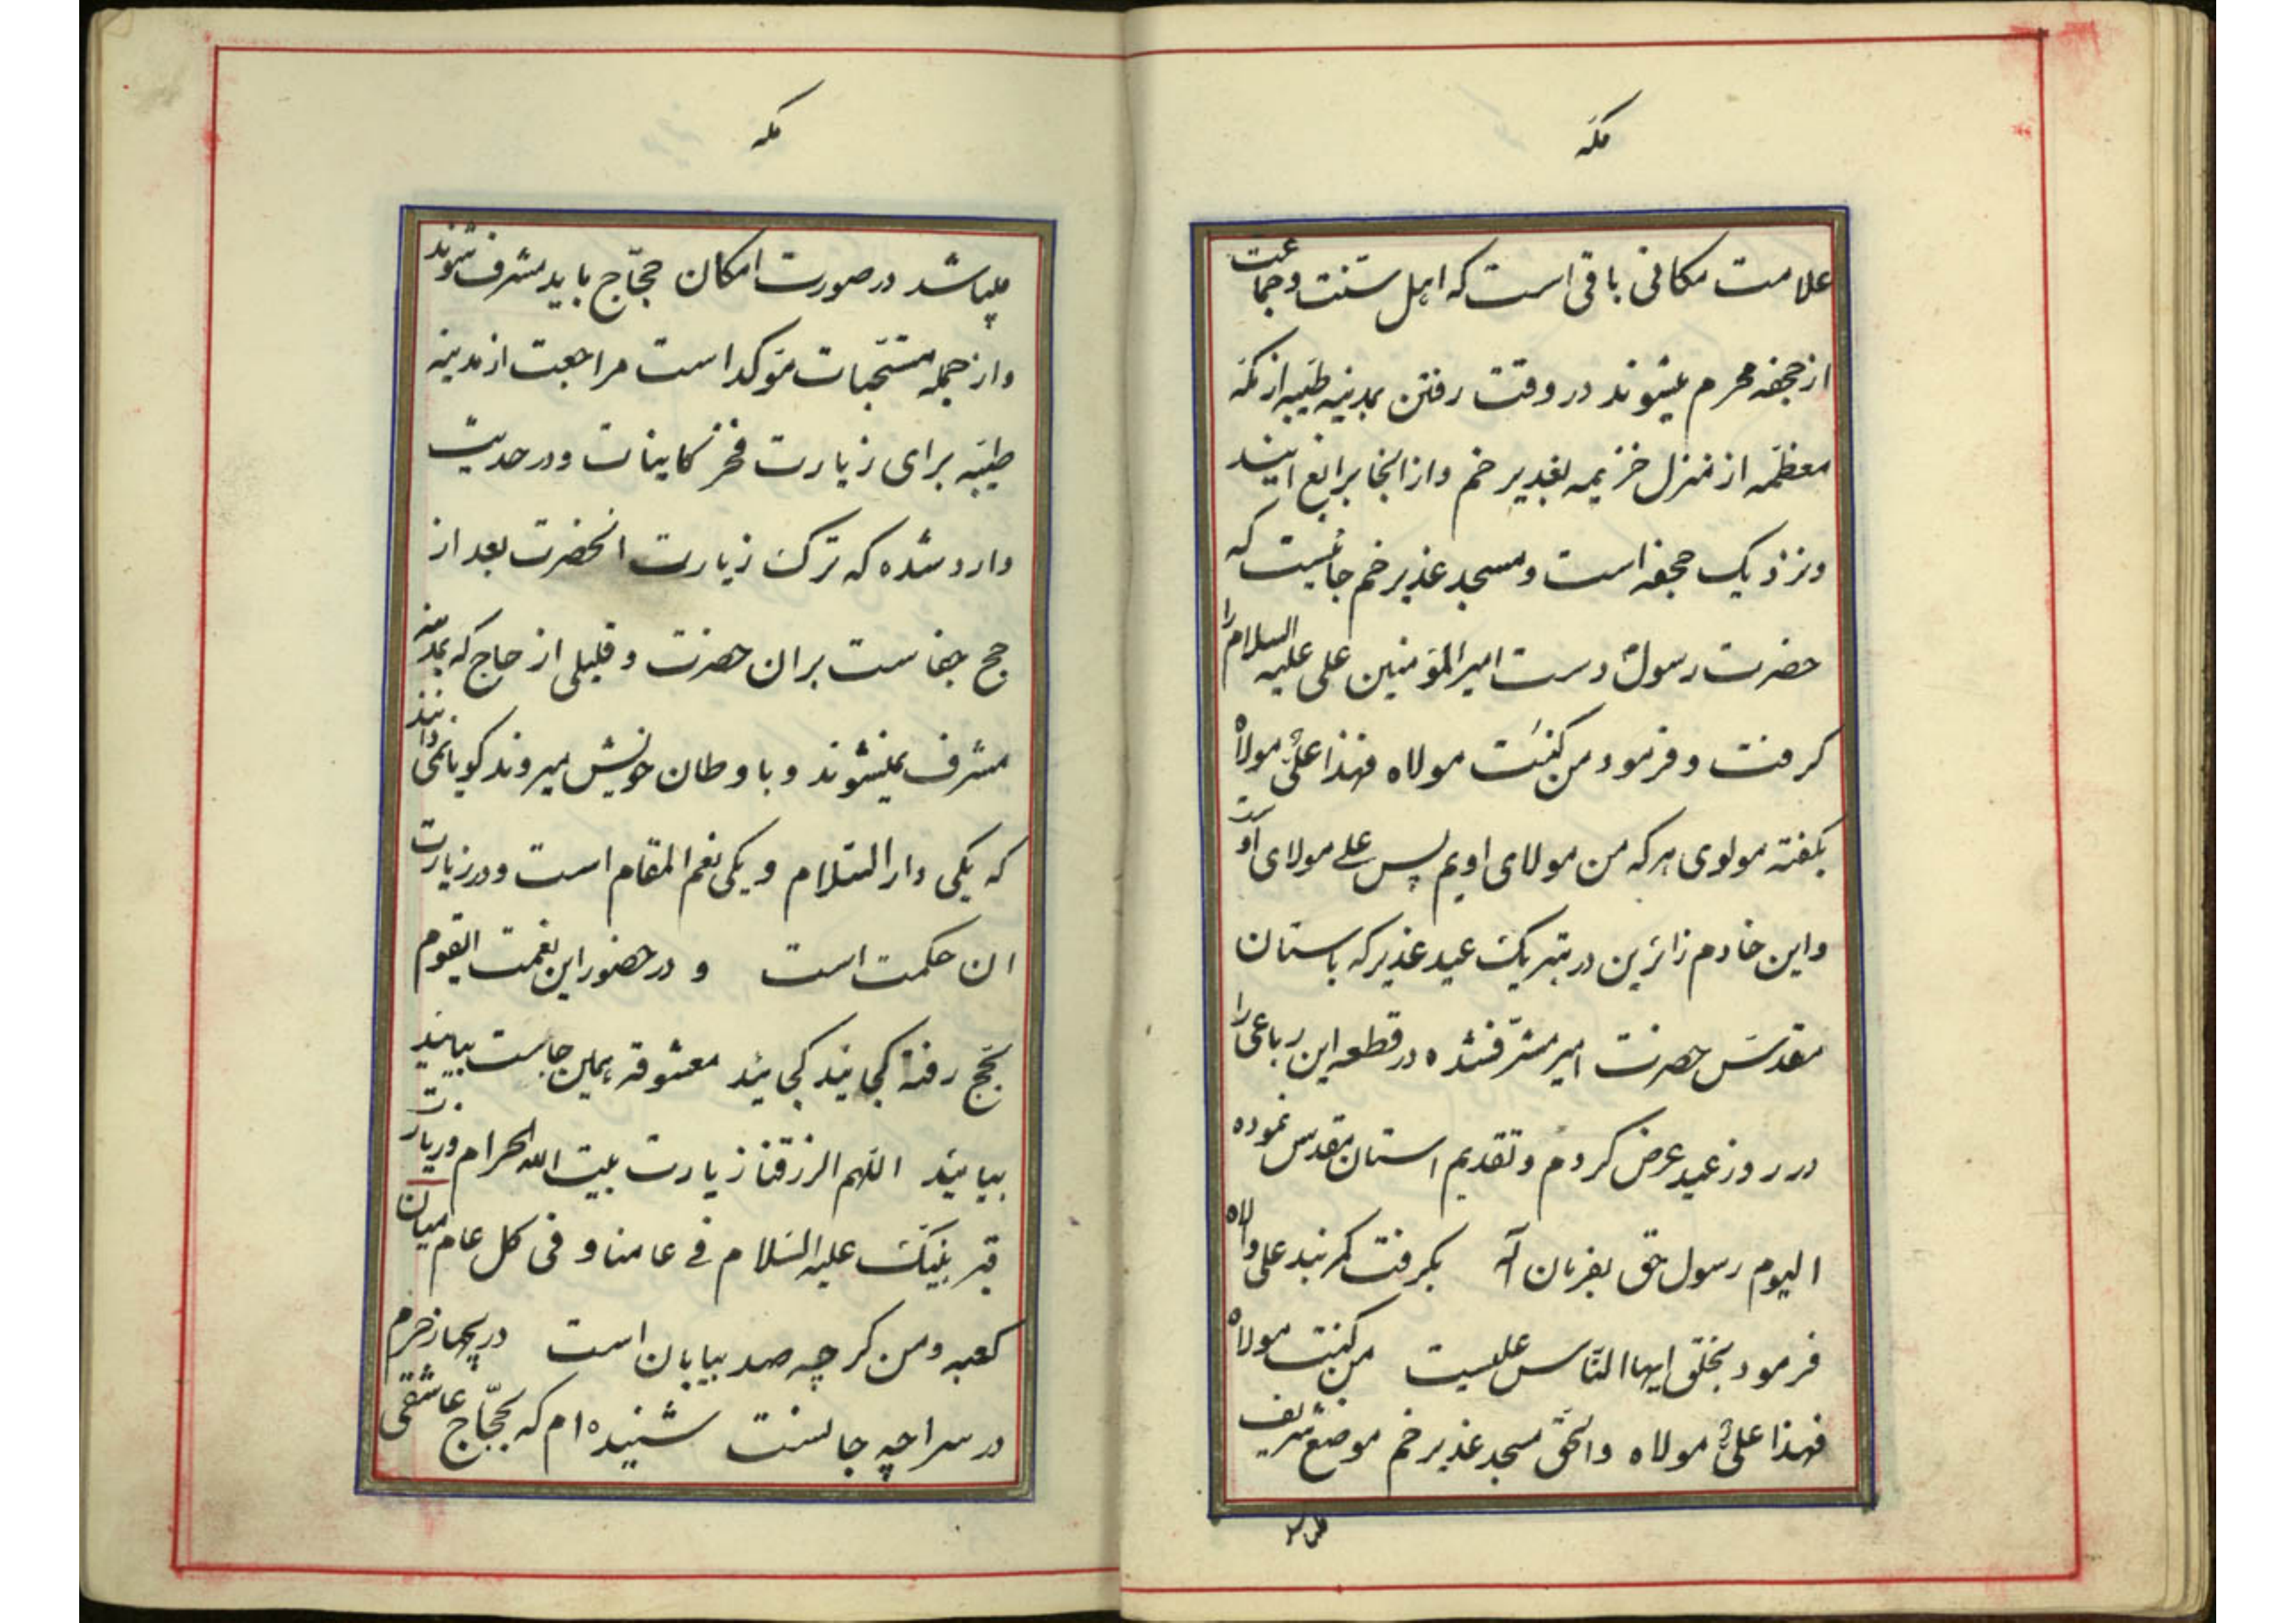 مکه
علامت مکانی باقی است که اهل سنت و جماعت
از جحفه محرم میشوند در وقت رفتن بمدینه طیبه از مکه
معظمه از منزل خزیمه بغدیر خم و از انجا برابغ ایند
و نزدیک جحفه است و مسجد غدیر خم جائیست که
حضرت رسول دست امیرالمؤمنین علی علیه السلام را
گرفت و فرمود من کنت مولاه فهذا علیٌ مولاه
بگفته مولوی هر که من مولای اویم پس علی مولای اوست
و این خادم زائرین در تبریک عید غدیر که باستان
مقدس حضرت امیر مشرف شده در قطعه این رباعی را
در روز عید عرض کردم و تقدیم استان مقدس نموده
الیوم رسول حق بفرمان آله بگرفت کمربند علی والاه
فرمود بخلق ایها الناس علیست من کنت مولاه
فهذا علیٌ مولاه والحق مسجد غدیر خم موضع شریف
مکه
میباشد در صورت امکان حجّاج باید مشرف شوند
و از جمله مستحبات مؤکد است مراجعت از مدینه
طیبه برای زیارت فخر کاینات و در حدیث
وارد شده که ترک زیارت انحضرت بعد از
حج جفاست بران حضرت و قلیلی از حاج که بمدینه
مشرف نمیشوند و باوطان خویش میروند گویا نمی دانند
که یکی دار السلام و یکی نعم المقام است و در زیارت
ان حکمت است و در حضور این نعمت ایقوم
بحج رفته کجائید کجائید معشوقه همین جاست بیایید
بیائید اللهم الرزقنا زیارت بیت الله الحرام و زیارت
قبر نبیک علیه السلام فی عامنا و فی کل عام میان
کعبه و من گرچه صد بیابان است دریچه از حرم
در سراچه جانست شنیده ام که بحجّاج عاشقی